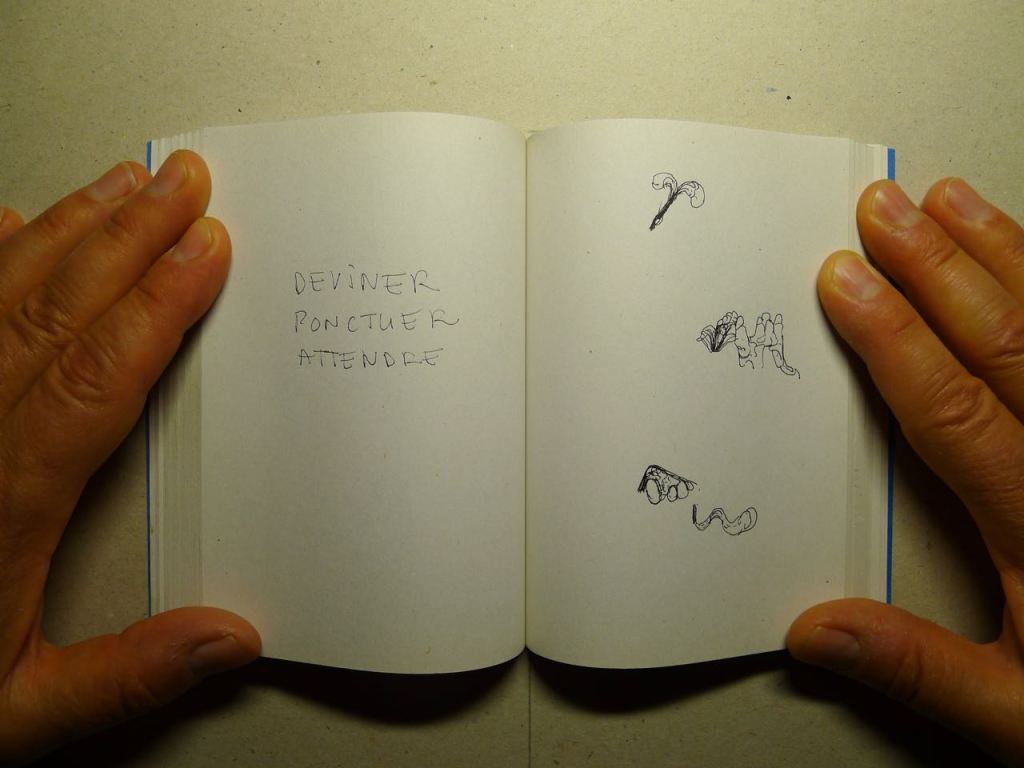 DEViNER
PONCTUER
ATTENDRE